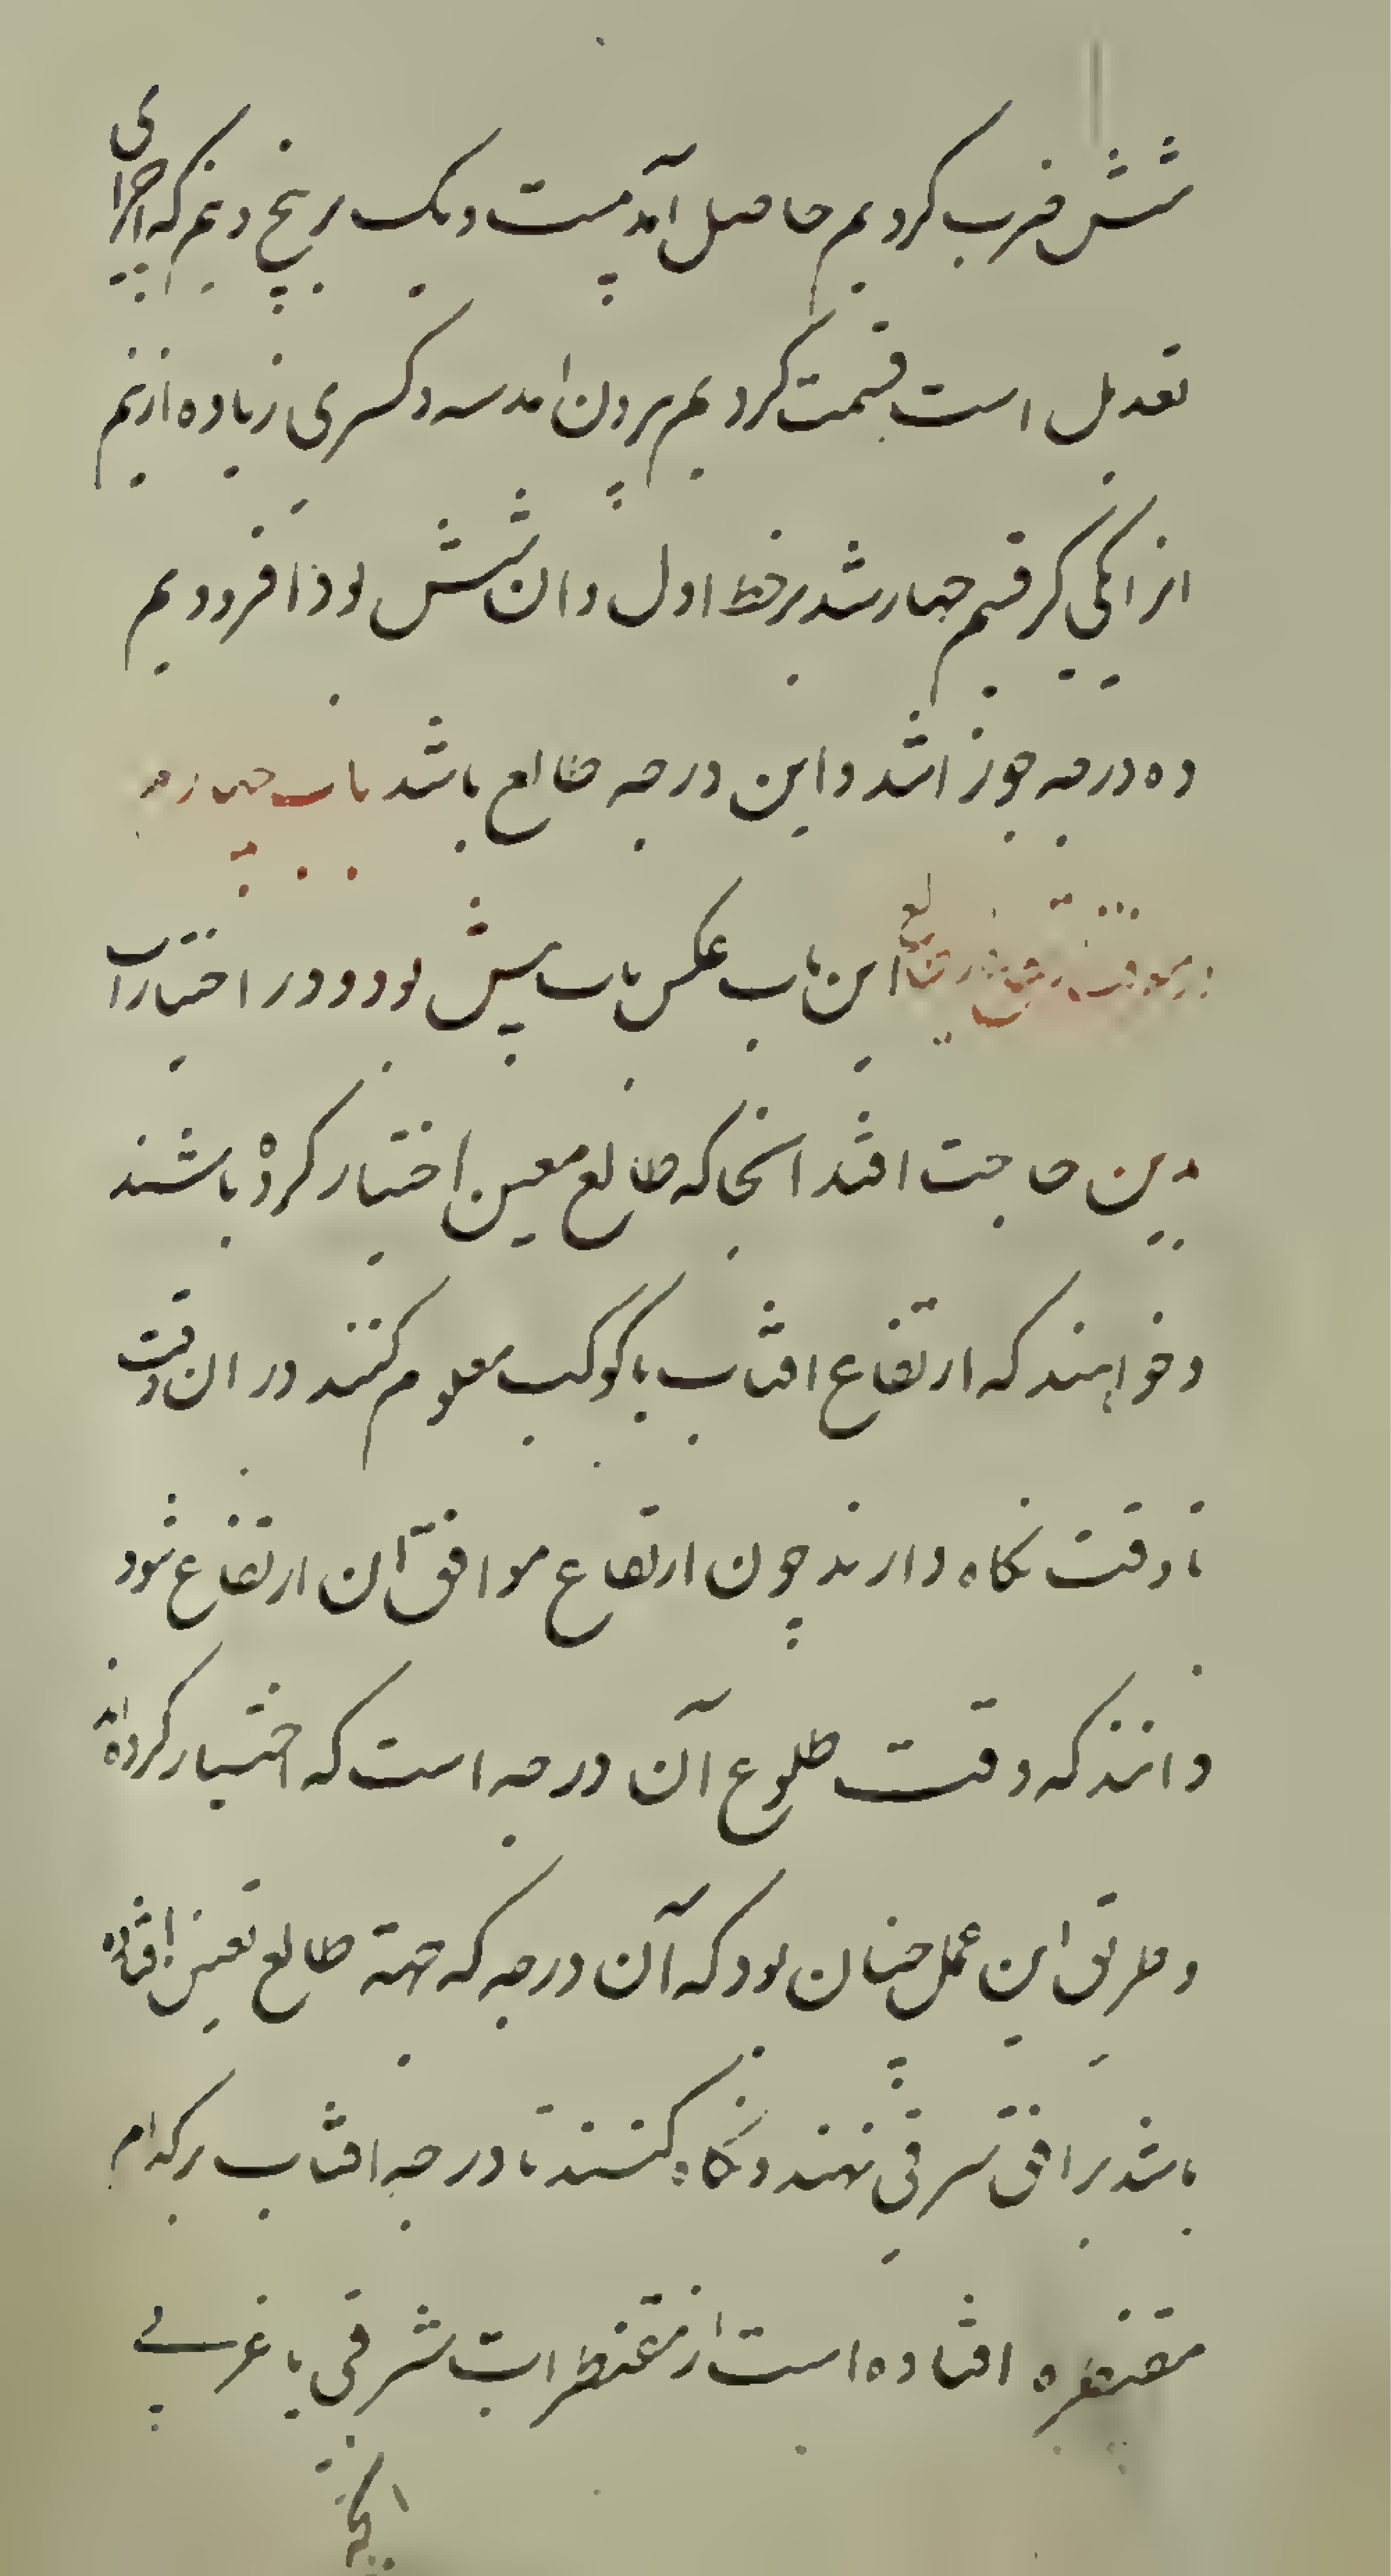 شش ضرب کردیم حاصل آمد بیست و یک بر پنج و نیم که اجزای
تعدیل است قسمت کردیم بیرون امد سه و کسری زیاده از نیم
انرا یکی گرفتیم چهار شد بر خط اول و ان شش بوذ افزودیم
ده درجه جوزا شد و این درجه طالع باشد باب چهاردهم
در معرفت ارتفاع از طالع این باب عکس باب پیش بود و در اختیارات
بدین حاجت افتد انجا که طالع معین اختیار کرده باشند
و خواهند که ارتفاع افتاب یا کوکب معلوم کنند در ان وقت
تا وقت نگاه دارند چون ارتفاع موافق آن ارتفاع شود
دانند که وقت طلوع آن درجه است که اختیار کرده‌اند
و طریق این عمل چنان بود که آن درجه که جهة طالع تعیین افتاده
باشد بر افق شرقی نهند و نگاه کنند تا درجه افتاب بر کدام
مقنطره افتاده است از مقنطرات شرقی یا غربی
انچه